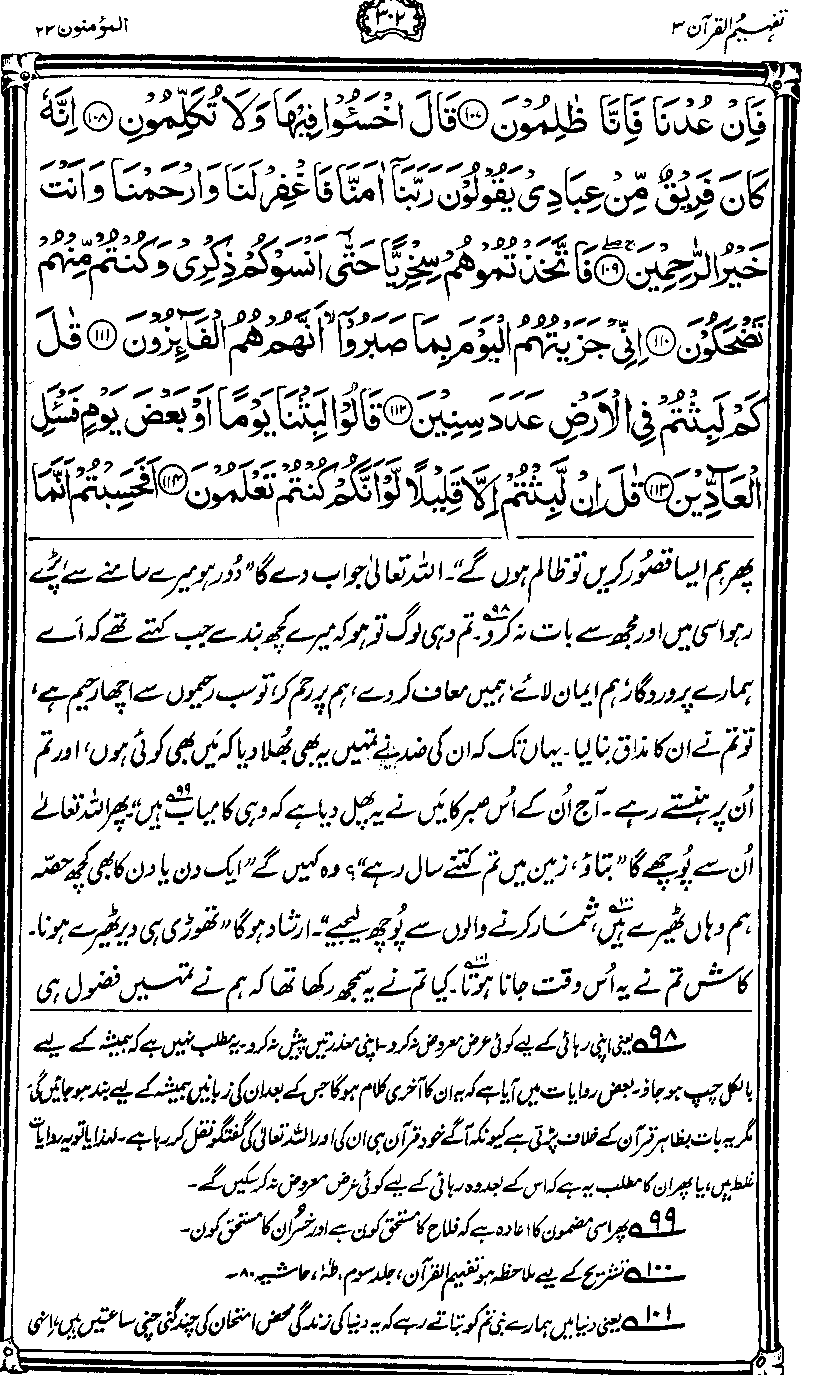 تفہیم القرآن ۳
۳۰۲
المؤمنون ۲۳
فَاِنْ عُدْنَا فَاِنَّا ظٰلِمُوْنَ ﴿۱۰۷﴾ قَالَ اخْسَـُٔوْا فِيْهَا وَلَا تُكَلِّمُوْنِ ﴿۱۰۸﴾ اِنَّهٗ
كَانَ فَرِيْقٌ مِّنْ عِبَادِيْ يَقُوْلُوْنَ رَبَّنَآ اٰمَنَّا فَاغْفِرْ لَنَا وَارْحَمْنَا وَاَنْتَ
خَيْرُ الرّٰحِمِيْنَ ﴿۱۰۹﴾ فَاتَّخَذْتُمُوْهُمْ سِخْرِيًّا حَتّٰٓى اَنْسَوْكُمْ ذِكْرِيْ وَكُنْتُمْ مِّنْهُمْ
تَضْحَكُوْنَ ﴿۱۱۰﴾ اِنِّيْ جَزَيْتُهُمُ الْيَوْمَ بِمَا صَبَرُوْٓا ۙ اَنَّهُمْ هُمُ الْفَآئِزُوْنَ ﴿۱۱۱﴾ قٰلَ
كَمْ لَبِثْتُمْ فِي الْاَرْضِ عَدَدَ سِنِيْنَ ﴿۱۱۲﴾ قَالُوْا لَبِثْنَا يَوْمًا اَوْ بَعْضَ يَوْمٍ فَسْـَٔلِ
الْعَآدِّيْنَ ﴿۱۱۳﴾ قٰلَ اِنْ لَّبِثْتُمْ اِلَّا قَلِيْلًا لَّوْ اَنَّكُمْ كُنْتُمْ تَعْلَمُوْنَ ﴿۱۱۴﴾ اَفَحَسِبْتُمْ اَنَّمَا
پھر ہم ایسا قصُور کریں تو ظالم ہوں گے“۔ اللہ تعالیٰ جواب دے گا ”دُور ہو میرے سامنے سے، پڑے
رہو اسی میں اور مجھ سے بات نہ کرو۔۹۸ تم وہی لوگ تو ہو کہ میرے کچھ بندے جب کہتے تھے کہ اَے
ہمارے پروردگار، ہم ایمان لائے، ہمیں معاف کر دے، ہم پر رحم کر، تُو سب رحیموں سے اچھا رحیم ہے،
تو تم نے ان کا مذاق بنا لیا۔ یہاں تک کہ ان کی ضد نے تمہیں یہ بھی بُھلا دیا کہ مَیں بھی کوئی ہوں، اور تم
اُن پر ہنستے رہے۔ آج اُن کے اُس صبر کا مَیں نے یہ پھل دیا ہے کہ وہی کامیاب ہیں“۔۹۹ پھر اللہ تعالےٰ
اُن سے پُوچھے گا ”بتاؤ، زمین میں تم کتنے سال رہے“؟ وہ کہیں گے ”ایک دن یا دن کا بھی کچھ حصّہ
ہم وہاں ٹھیرے ہیں،۱۰۰ شمار کرنے والوں سے پُوچھ لیجیے“۔ ارشاد ہوگا ”تھوڑی ہی دیر ٹھیرے ہو نا۔
کاش تم نے یہ اُس وقت جانا ہوتا۔۱۰۱ کیا تم نے یہ سمجھ رکھا تھا کہ ہم نے تمہیں فضول ہی
۹۸ یعنی اپنی رہائی کے لیے کوئی عرض معروض نہ کرو۔ اپنی معذرتیں پیش نہ کرو۔ یہ مطلب نہیں ہے کہ ہمیشہ کے لیے
بالکل چپ ہو جاؤ۔ بعض روایات میں آیا ہے کہ یہ ان کا آخری کلام ہوگا جس کے بعد ان کی زبانیں ہمیشہ کے لیے بند ہو جائیں گی،
مگر یہ بات بظاہر قرآن کے خلاف پڑتی ہے کیونکہ آگے خود قرآن ہی ان کی اور اللہ تعالیٰ کی گفتگو نقل کر رہا ہے۔ لہٰذا یا تو یہ روایات
غلط ہیں، یا پھر ان کا مطلب یہ ہے کہ اس کے بعد وہ رہائی کے لیے کوئی عرض معروض نہ کر سکیں گے۔
۹۹ پھر اسی مضمون کا اعادہ ہے کہ فلاح کا مستحق کون ہے اور خسران کا مستحق کون۔
۱۰۰ تشریح کے لیے ملاحظہ ہو تفہیم القرآن، جلد سوم، طٰہٰ، حاشیہ ۸۰۔
۱۰۱ یعنی دنیا میں ہمارے نبی تم کو بتاتے رہے کہ یہ دنیا کی زندگی محض امتحان کی چند گنی چنی ساعتیں ہیں، اِنہی